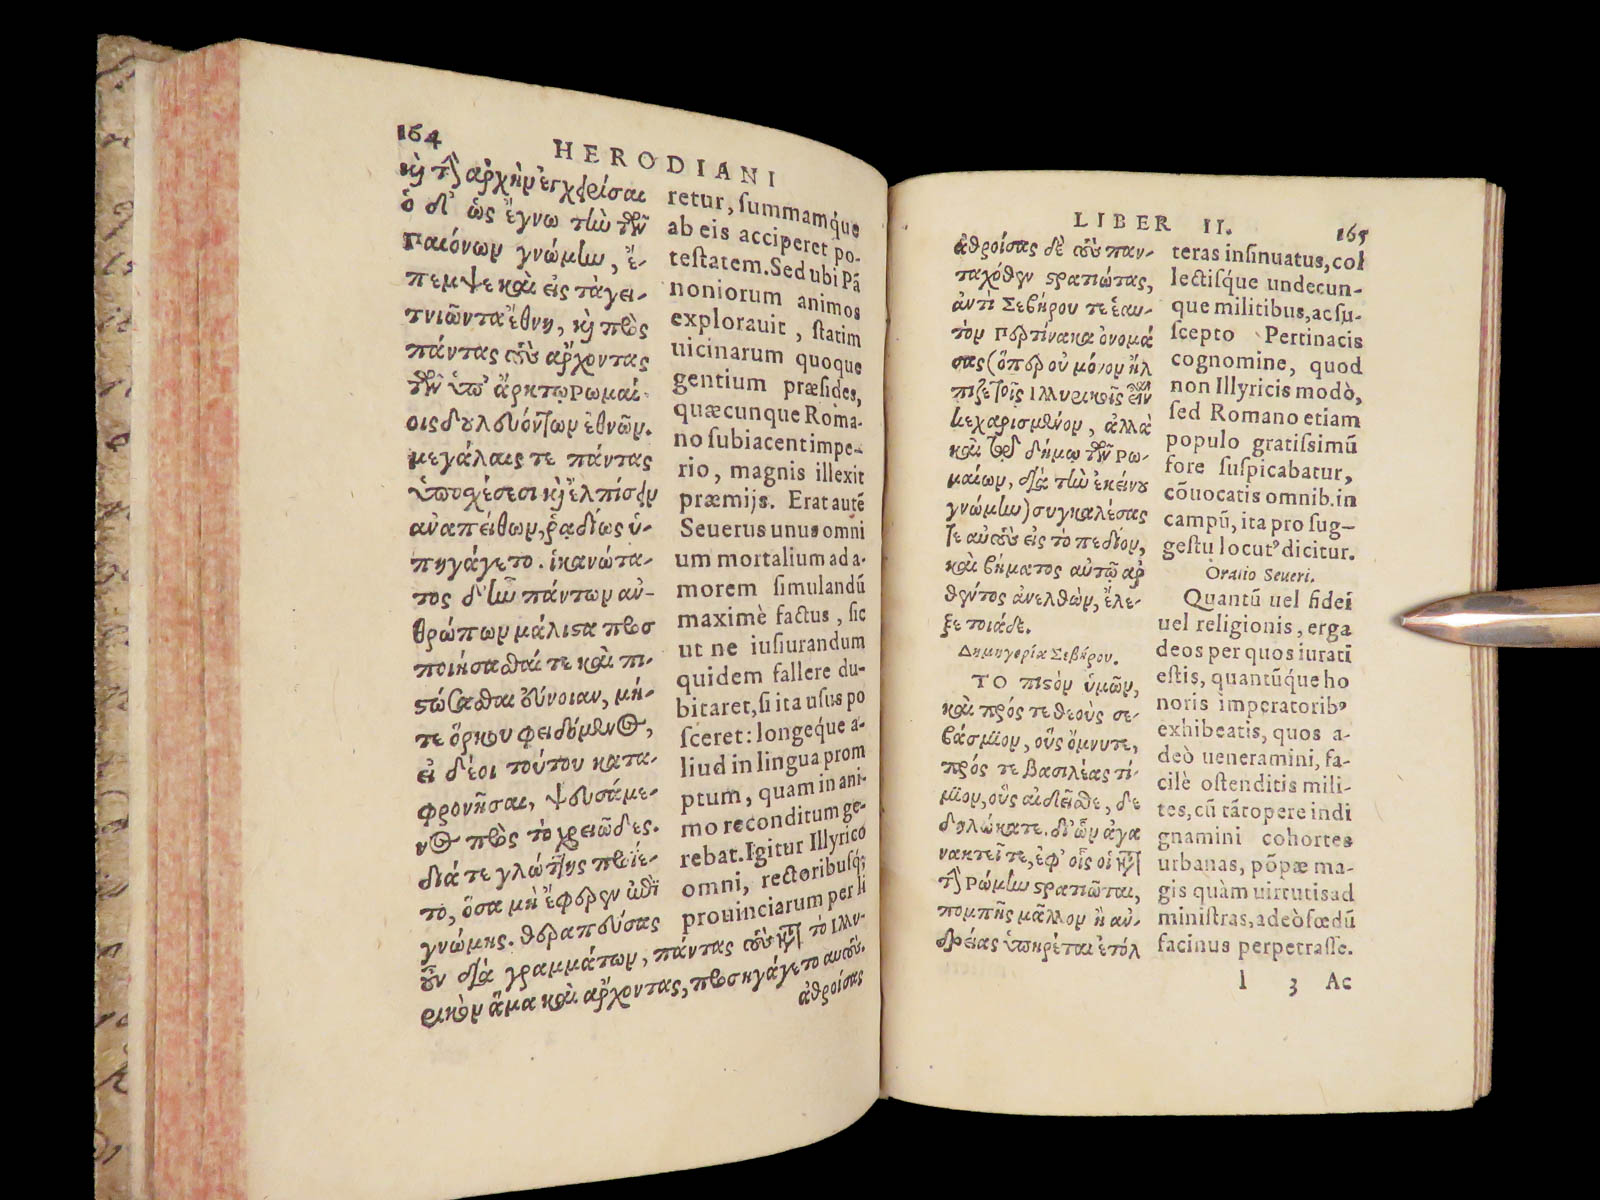 164
HERODIANI
καὶ τὴν ἀρχὴν ἐγχειρίσαι
ὁ δ' ὡς ἔγνω τὴν τῶν
Παιόνων γνώμην, ἔ-
πεμψε καὶ εἰς τὰ γει-
τνιῶντα ἔθνη, καὶ πρὸς
πάντας τοὺς ἄρχοντας
τῶν ὑπ' ἄρκτῳ Ρωμαί-
οις δουλευόντων ἐθνῶν.
μεγάλαις τε πάντας
ὑποσχέσεσι καὶ ἐλπίσιν
ἀναπείθων, ῥᾳδίως ὑ-
πηγάγετο. ἱκανώτα-
τος δ' ἦν πάντων ἀν-
θρώπων μάλιστα προσ
ποιήσασθαί τε καὶ πι-
στώσασθαι εὔνοιαν, μή-
τε ὅρκου φειδόμενος,
εἰ δέοι τούτου κατα-
φρονῆσαι, ψευσάμε-
νος πρὸς τὸ χρειῶδες.
διά τε γλώττης προΐε-
το, ὅσα μὴ ἔφερεν ἐπὶ
γνώμης. θεραπεύσας
οὖν διὰ γραμμάτων, πάντας τοὺς κατὰ τὸ Ιλλυ-
ρικὸν ἅμα καὶ ἄρχοντας, προσηγάγετο αὐτούς.
ἀθροίσας
retur, ſummamq́ue
ab eis acciperet po-
teſtatem. Sed ubi Pã
noniorum animos
explorauit, ſtatim
uicinarum quoque
gentium præſides,
quæcunque Roma-
no ſubiacent impe-
rio, magnis illexit
præmijs. Erat autẽ
Seuerus unus omni
um mortalium ad a-
morem ſimulandũ
maximè factus, ſic
ut ne iuſiurandum
quidem fallere du-
bitaret, ſi ita uſus po
ſceret: longeq́ue a-
liud in lingua prom
ptum, quam in ani-
mo reconditum ge-
rebat. Igitur Illyrico
omni, rectoribuſq́;
prouinciarum per li
LIBER II.
165
ἀθροίσας δὲ τοὺς παν-
ταχόθεν στρατιώτας,
ἀντὶ Σεβήρου τε ἑαυ-
τὸν Περτίνακα ὀνομά
σας (ὅπερ οὐ μόνον ἤλ
πιζε τοῖς Ιλλυρικοῖς εἶναι
κεχαρισμένον, ἀλλὰ
καὶ τῷ δήμῳ τῶν Ρω-
μαίων, διὰ τὴν ἐκείνου
γνώμην) συγκαλέσας
τε αὐτοὺς εἰς τὸ πεδίον,
καὶ βήματος αὐτῷ ἀρ
θέντος ἀνελθὼν, ἔλε-
ξε τοιάδε.
Δημηγορία Σεβήρου.
ΤΟ πιστὸν ὑμῶν,
καὶ πρός τε θεοὺς σε-
βάσμιον, οὓς ὄμνυτε,
πρός τε βασιλέας τί-
μιον, οὓς αἰδεῖσθε, δε
δηλώκατε. δι' ὧν ἀγα
νακτεῖτε, ἐφ' οἷς οἱ κατὰ
τὴν Ρώμην στρατιῶται,
πομπῆς μᾶλλον ἢ ἀν-
δρείας ὑπηρέται ἐτόλ
teras inſinuatus, col
lectiſq́ue undecun-
que militibus, ac ſu-
ſcepto Pertinacis
cognomine, quod
non Illyricis modò,
ſed Romano etiam
populo gratiſsimũ
fore ſuſpicabatur,
cõuocatis omnib. in
campũ, ita pro ſug-
geſtu locutꝰ dicitur.
Oratio Seueri.
Quantũ uel fidei
uel religionis, erga
deos per quos iurati
eſtis, quantũq́ue ho
noris imperatoribꝰ
exhibeatis, quos a-
deò ueneramini, fa-
cilè oſtenditis mili-
tes, cũ tãtopere indi
gnamini cohortes
urbanas, põpæ ma-
gis quàm uirtutis ad
miniſtras, adeò fœdũ
facinus perpetraſſe.
l 3 Ac